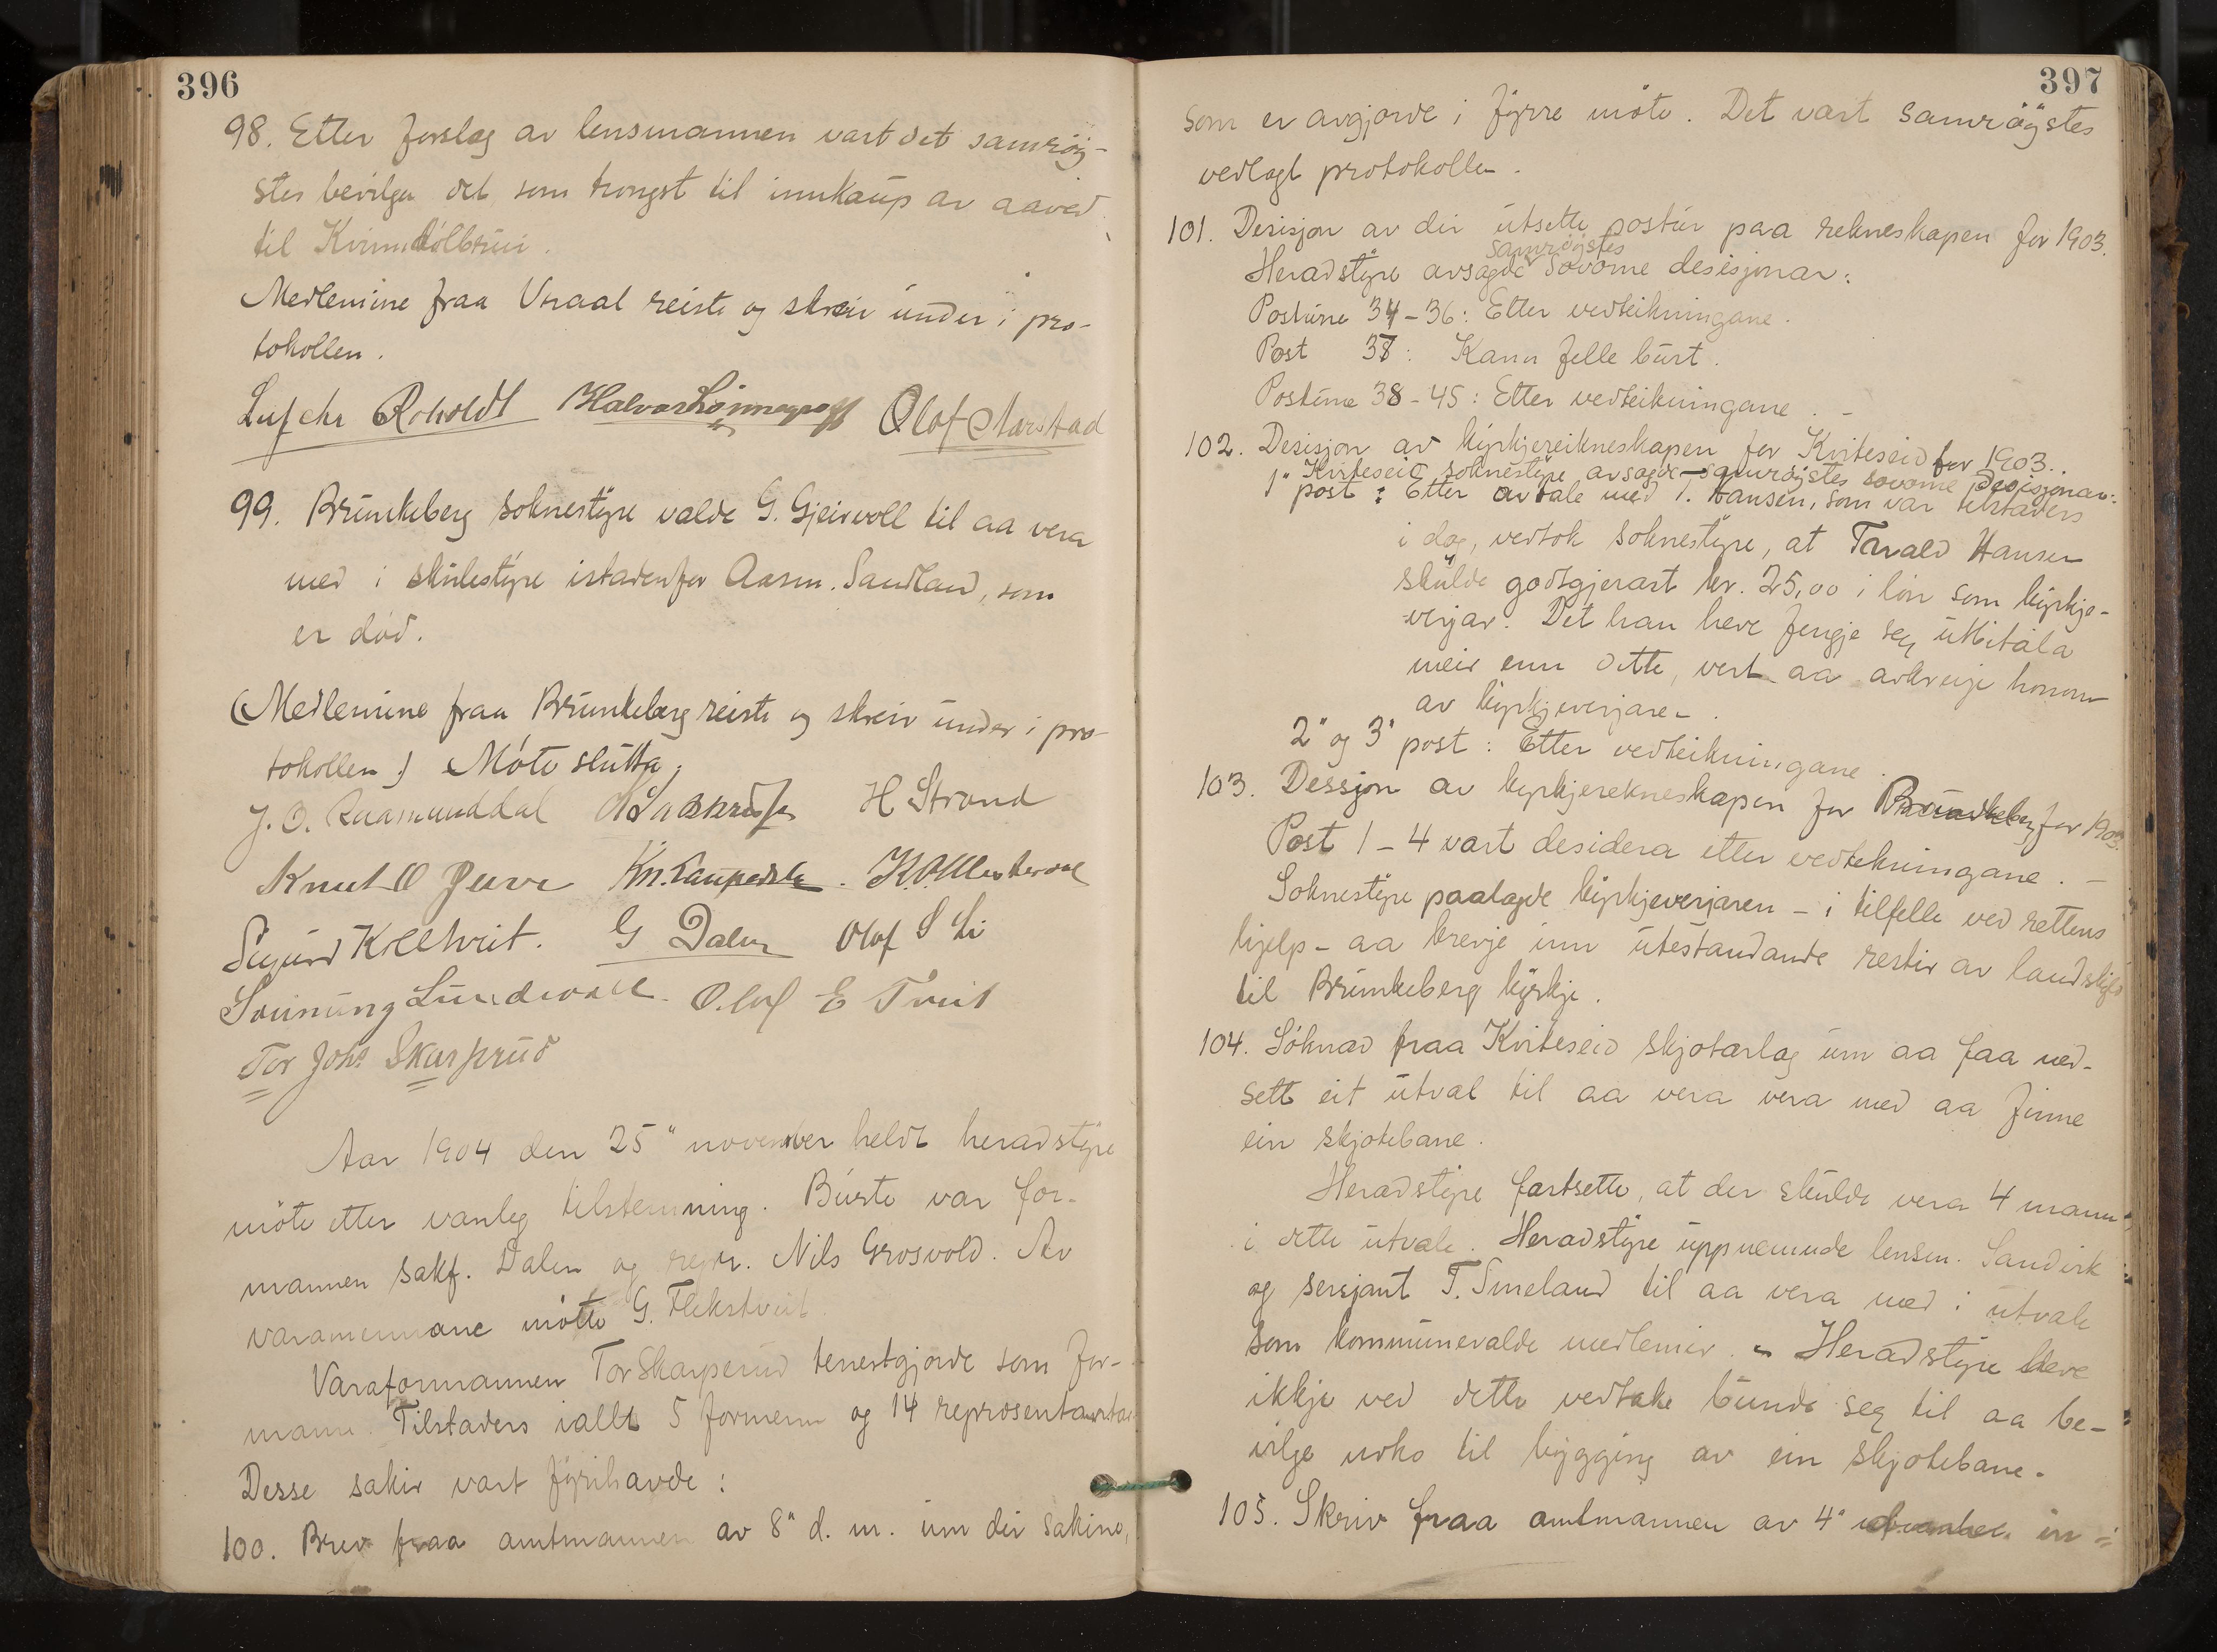 396
98. Etter forslag av lensmannen vart det samröy-
stes bevilga det som trongst til innkaup av aaved
til Kvinndölbrui.
Medlemine fraa Vraal reiste og skreiv under i pro-
tokollen.
Roholdt Halvor Olof
99. Brunkeberg soknestyre valde G. Gjeirvoll til aa vera
med i skulestyre istadenfor Aasm. Sandland, som
er död.
(Medlemine fraa Brunkeberg reiste og skreiv under i pro-
tokollen.) Möte slutta.
J. O. Raamunddal H Strand
Knut O Juve
Sigurd Kolltveit. G Dalen Olof S Li
Sveinung Lundevall. Olaf E Tveit
Tor Johs Skarprud
Aar 1904 den 25" november heldt heradstyre
möte etter vanleg tilstemning. Burte var for-
mannen sakf. Dalen og repr. Nils Grosvold. Av
varamennane mötte G. Flekstveit.
Varaformannen Tor Skarperud tenestgjorde som for-
mann. Tilstaders iallt 5 formenn og 14 representantar
Desse sakir vart fyrihavde:
100. Brev fraa amtmannen av 8" d. m. um dei sakine,
397
som er avgjorde i fyrre möte. Det vart samröystes
vedlagt protokollen.
101. Desisjon av dei utsette postur paa rekneskapen for 1903.
samröystes
Heradstyre avsagde sovorne desisjonar:
Postune 34-36: Etter vedteikningane.
Post 37: Kann felle burt.
Postune 38-45: Etter vedteikningane. -
102. Desisjon av kyrkjereikneskapen for Kviteseid for 1903.
Kviteseid soknestyre avsagde samröystes sovorne desisjonar:
1" post: Etter avtale med T. Hansen, som var tilstaders
i dag, vedtok soknestyre, at Tarald Hansen
skulde godtgjerast kr. 25,00 i lön som kyrkje-
verjar. Det han heve fengje seg utbitala
meir enn dette, vert aa avkreije honom
av kyrkjeverjaren.
2" og 3" post: Etter vedteikningane.
103. Dessjon av kyrkjerekneskapen for Brunkeberg for 1903.
Post 1-4 vart desidera etter vedtekningane. -
Soknestyre paalagde kyrkjeverjaren - i tilfelle ved rettens
hjelp - aa krevje inn utestandande restir av landskyld
til Brunkeberg kyrkje.
104. Söknad fraa Kviteseid skjotarlag um aa faa ned-
sett eit utval til aa vera vera med aa finne
ein skjotebane.
Heradstyre fastsette, at der skulde vera 4 mann
i dette utvale. Heradstyre uppnemnde lensm. Sandvik
og sersjant T. Smeland til aa vera med i utvale
som kommunevalde medlemir. - Heradstyre heve
ikkje ved dette vedtake bunde seg til aa be-
vilge noko til bygging av ein skjotebane.
105. Skriv fraa amtmannen av 4"